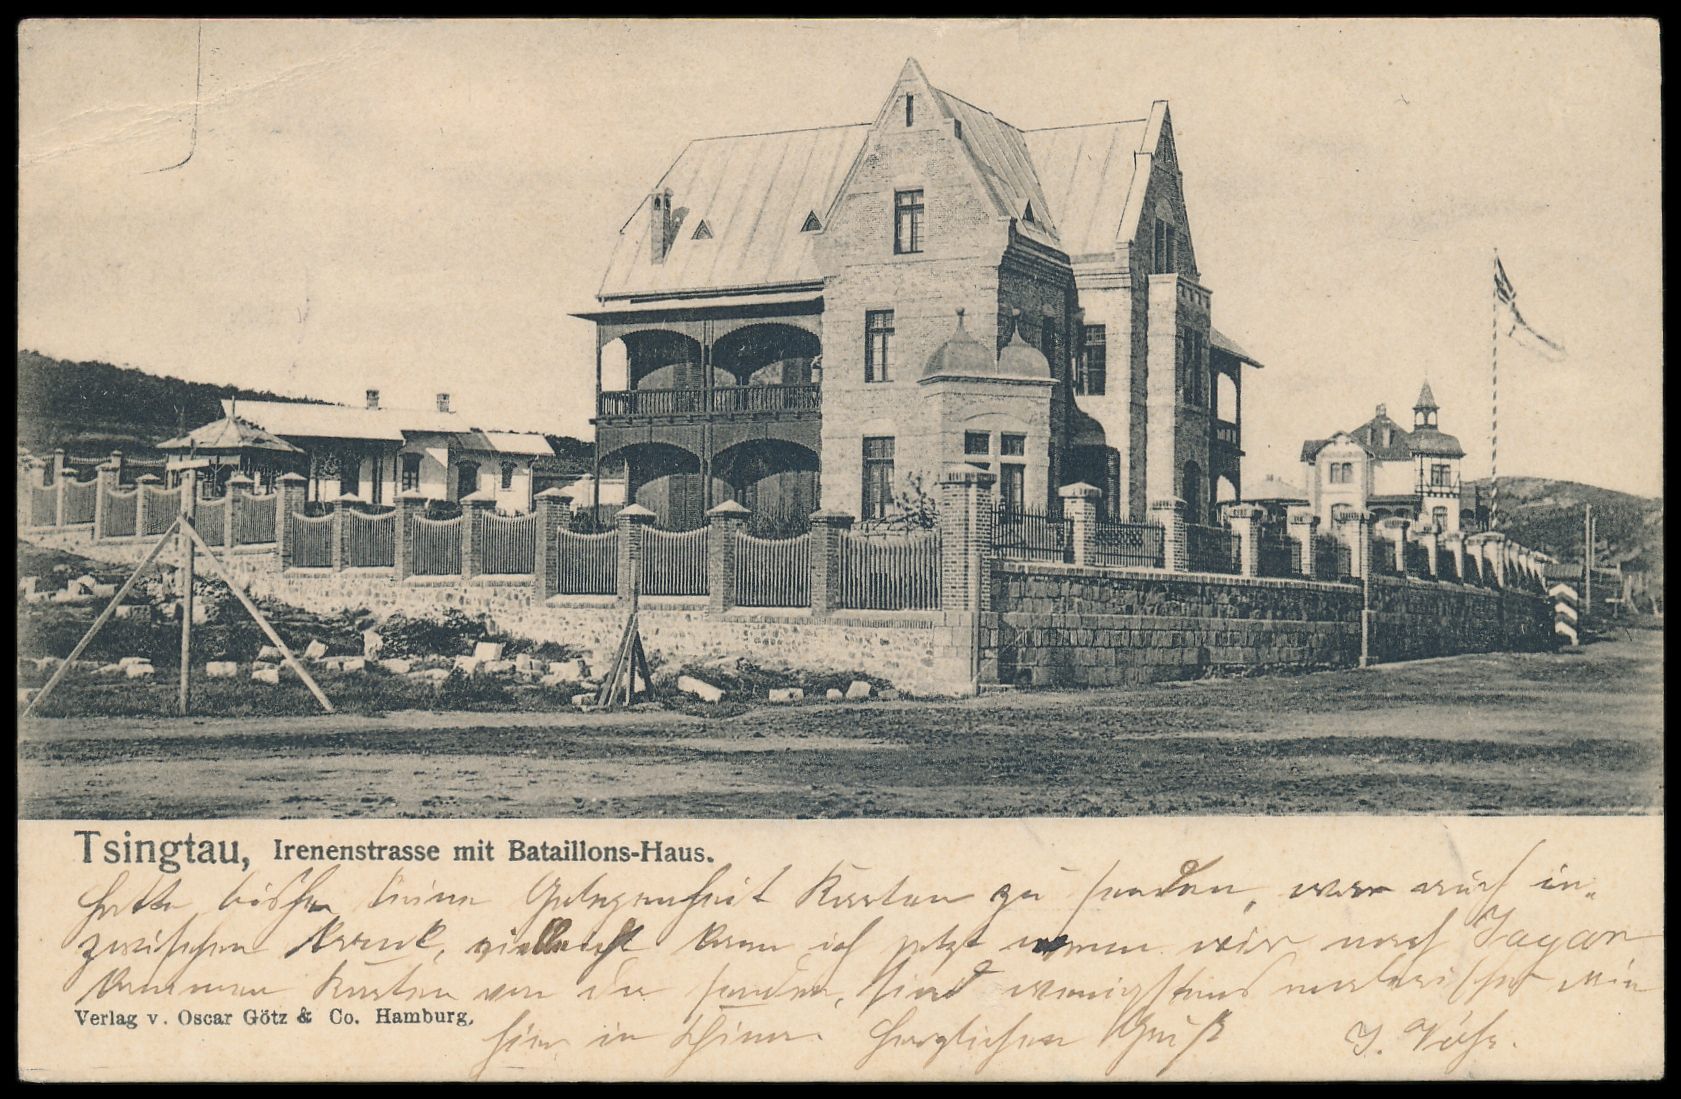 Tsingtau, Irenenstrasse mit Bataillons-Haus.
hatte bisher keine Gelegenheit Karten zu senden, war auch in-
zwischen krank, vielleicht kann ich jetzt wenn wir nach Japan
kommen Karten von da senden, sind wenigstens malerischer wie
Verlag v. Oscar Götz & Co. Hamburg.
hier in China. Herzlichen Gruß